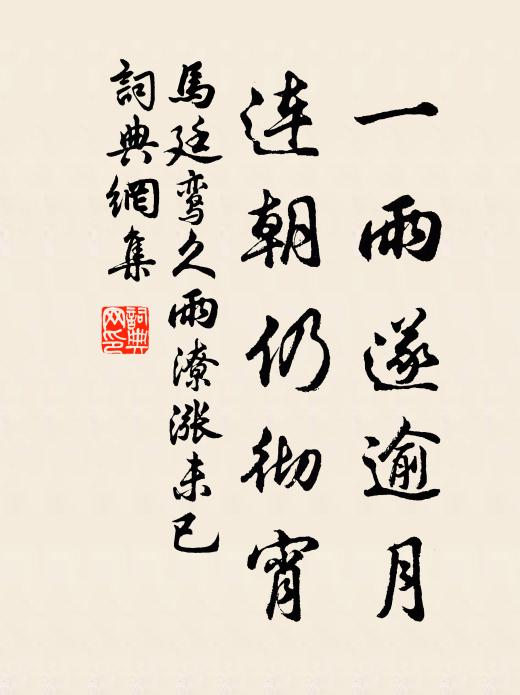 一雨遂逾月
連朝仍彻宵
馬廷鸾久雨潦漲未已
詞典網集
詞典网印